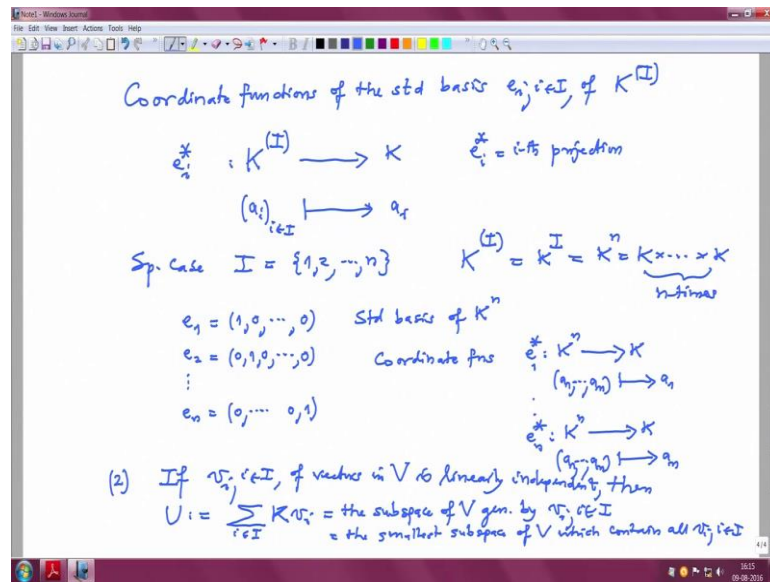 Note1 - Windows Journal
File Edit View Insert Actions Tools Help
Coordinate functions of the std basis e_i, i∈I, of K^(I)
e_i^* : K^(I) ⟶ K    e_i^* = i-th projection
(a_i)_{i∈I} ⟼ a_i
Sp. Case I = {1,2,⋯,n}    K^(I) = K^I = K^n = K×⋯×K
n-times
e_1 = (1,0,⋯,0)    Std basis of K^n
e_2 = (0,1,0,⋯,0)    Coordinate fns    e_1^* : K^n ⟶ K
⋮    (a_1,⋯,a_n) ⟼ a_1
e_n = (0,⋯ 0,1)    e_n^* : K^n ⟶ K
(a_1,⋯,a_n) ⟼ a_n
(2) If v_i, i∈I, of vectors in V is linearly independent, then
U := ∑_{i∈I} K v_i = the subspace of V gen. by v_i, i∈I
= the smallest subspace of V which contain all v_i, i∈I
4/4
16:15
09-08-2016